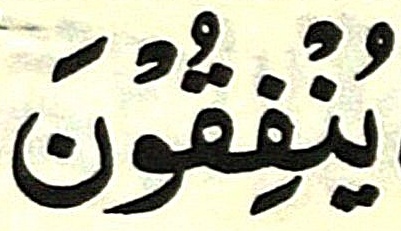 يُنْفِقُوْنَ